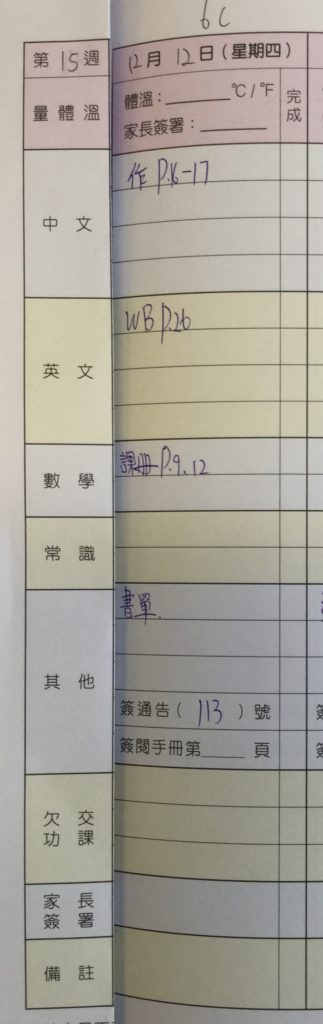 6C
第15週
12月12日(星期四)
量體溫
體溫:______°C/°F
家長簽署:______
完成
中文
作 P.16-17
英文
WB P.26
數學
課冊 P.9, 12
常識
其他
書單.
簽通告(113)號
簽閱手冊第____頁
欠交功課
家長簽署
備註